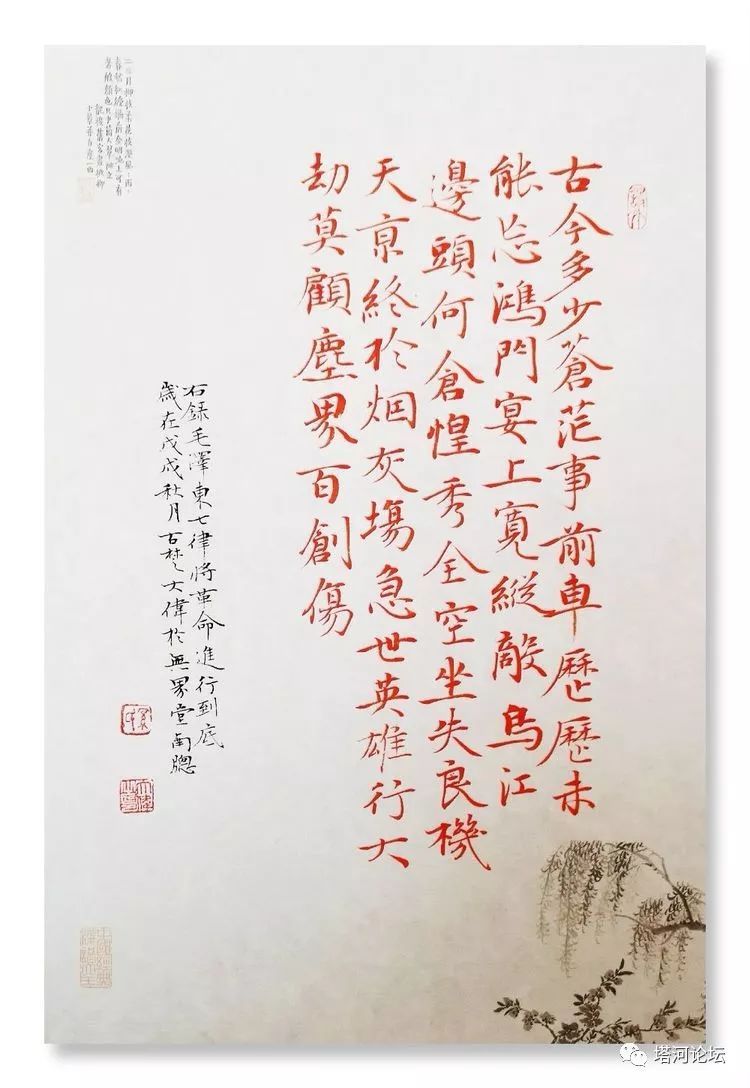 古今多少蒼茫事前車歷歷未
能忘鴻門宴上寬縱敵烏江
邊頭何倉惶秀全空坐失良機
天京終於烟灰場急世英雄行大
劫莫顧塵界百創傷
右錄毛澤東七律將革命進行到底
歲在戊戌秋月百楚大偉於無界堂南牕
塔河论坛